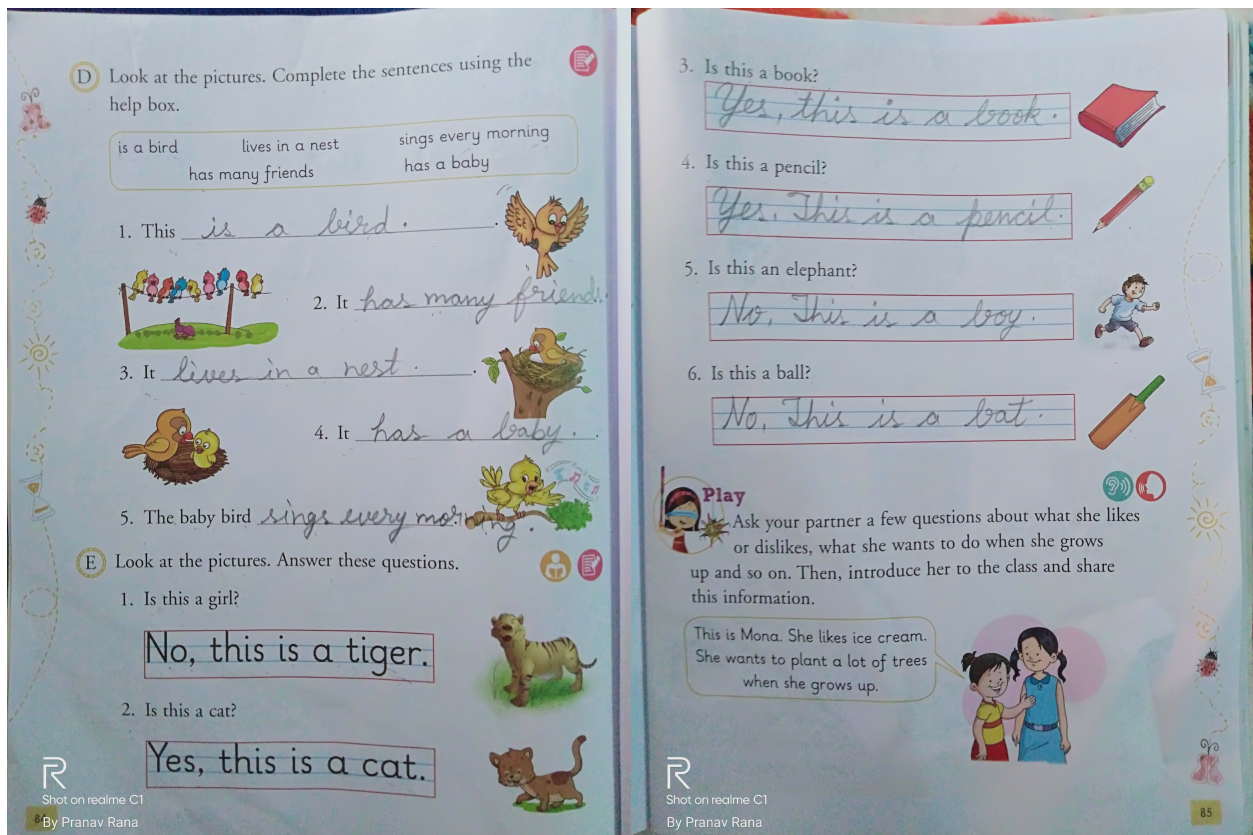 D Look at the pictures. Complete the sentences using the
help box.
is a bird lives in a nest sings every morning
has many friends has a baby
1. This is a bird. .
2. It has many friends.
3. It lives in a nest. .
4. It has a baby. .
5. The baby bird sings every morning.
E Look at the pictures. Answer these questions.
1. Is this a girl?
No, this is a tiger.
2. Is this a cat?
Yes, this is a cat.
Shot on realme C1
84 By Pranav Rana
3. Is this a book?
Yes, this is a book.
4. Is this a pencil?
Yes. This is a pencil.
5. Is this an elephant?
No, This is a boy.
6. Is this a ball?
No, This is a bat.
Play
Ask your partner a few questions about what she likes
or dislikes, what she wants to do when she grows
up and so on. Then, introduce her to the class and share
this information.
This is Mona. She likes ice cream.
She wants to plant a lot of trees
when she grows up.
Shot on realme C1
By Pranav Rana
85